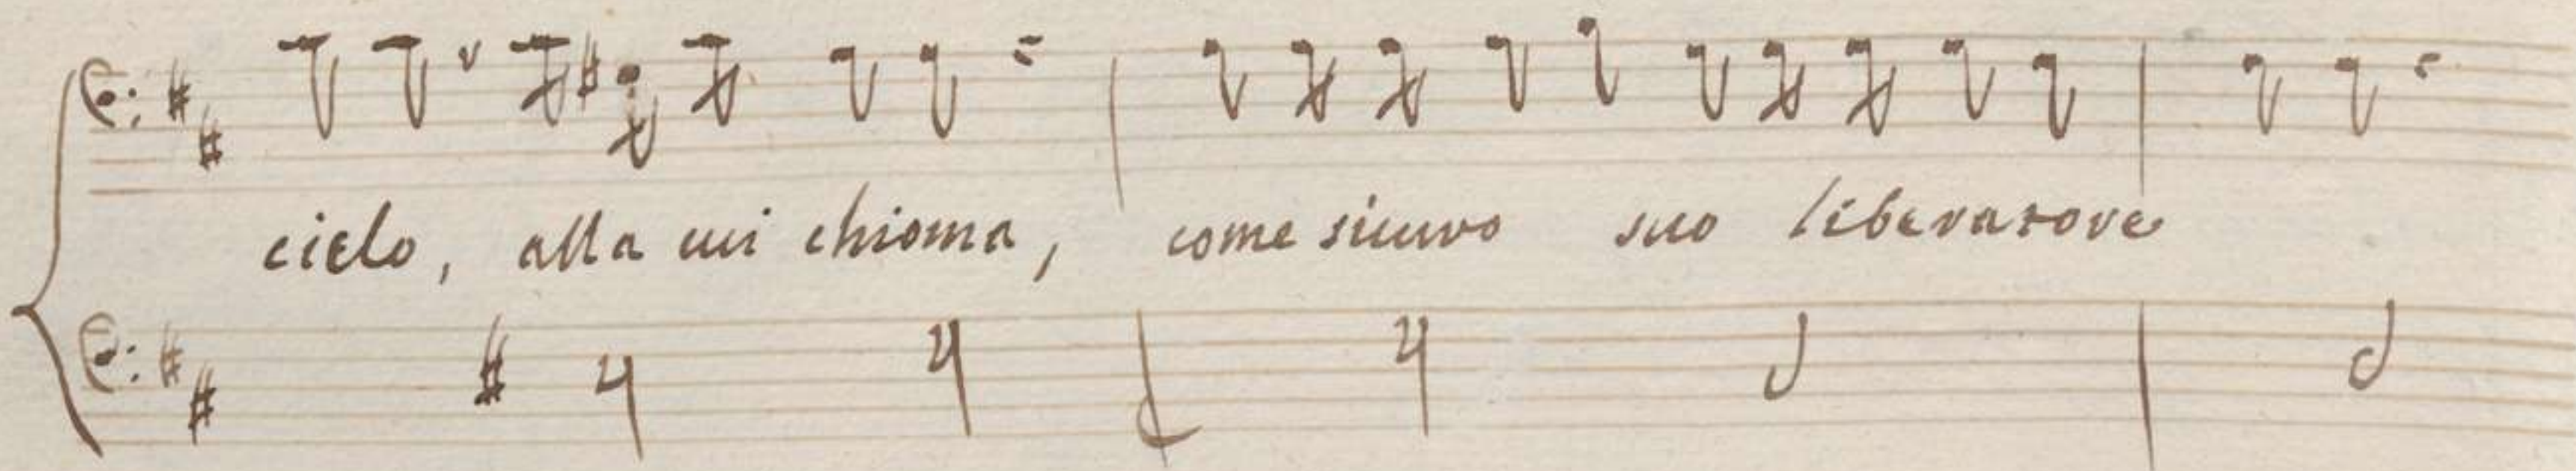 cielo, alla cui chioma, come sicuro suo liberatore